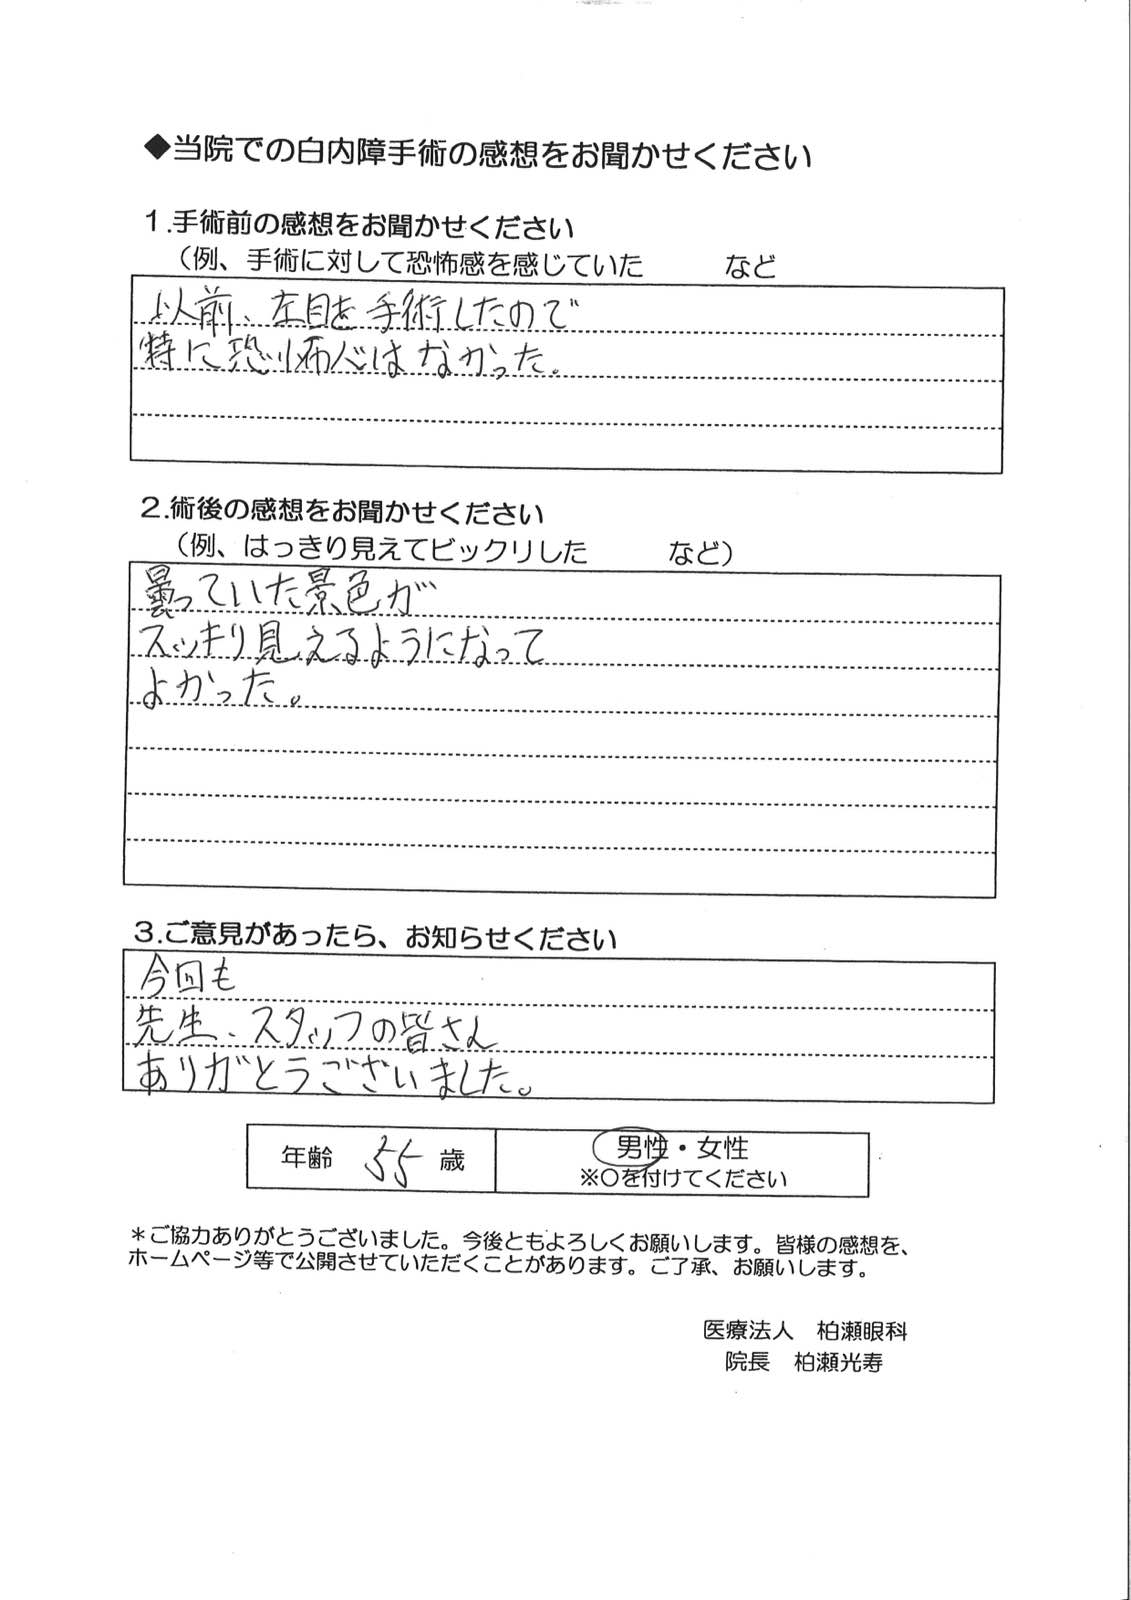 ◆当院での白内障手術の感想をお聞かせください
1.手術前の感想をお聞かせください
（例、手術に対して恐怖感を感じていた　　　など
以前、左目を手術したので
特に恐怖心はなかった。
2.術後の感想をお聞かせください
（例、はっきり見えてビックリした　　　など）
曇っていた景色が
スッキリ見えるようになって
よかった。
3.ご意見があったら、お知らせください
今回も
先生、スタッフの皆さん
ありがとうございました。
年齢　55　歳
男性・女性
※○を付けてください
＊ご協力ありがとうございました。今後ともよろしくお願いします。皆様の感想を、
ホームページ等で公開させていただくことがあります。ご了承、お願いします。
医療法人　柏瀬眼科
院長　柏瀬光寿